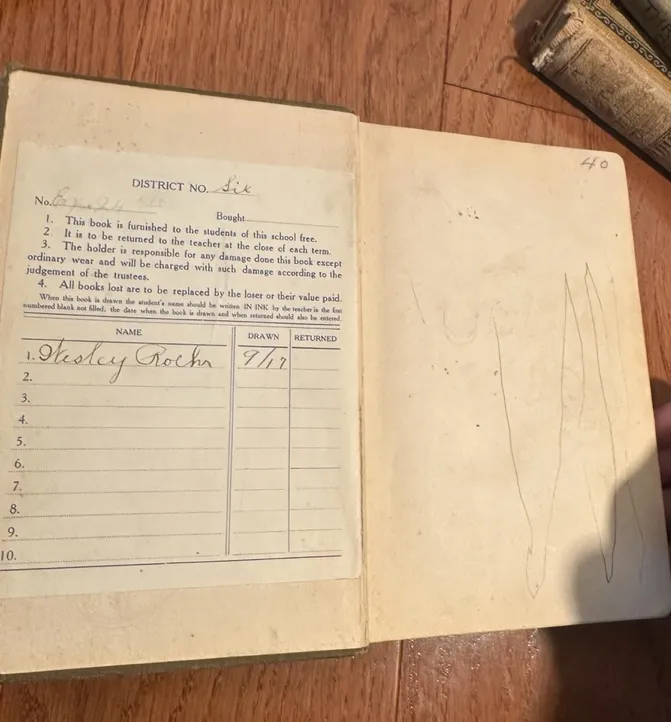 DISTRICT NO. Six
No.
Bought
1. This book is furnished to the students of this school free.
2. It is to be returned to the teacher at the close of each term.
3. The holder is responsible for any damage done this book except
ordinary wear and will be charged with such damage according to the
judgement of the trustees.
4. All books lost are to be replaced by the loser or their value paid.
When this book is drawn the student's name should be written IN INK by the teacher in the first
numbered blank not filled; the date when the book is drawn and when returned should also be entered.
NAME DRAWN RETURNED
1. Wesley 9/17
2.
3.
4.
5.
6.
7.
8.
9.
10.
40